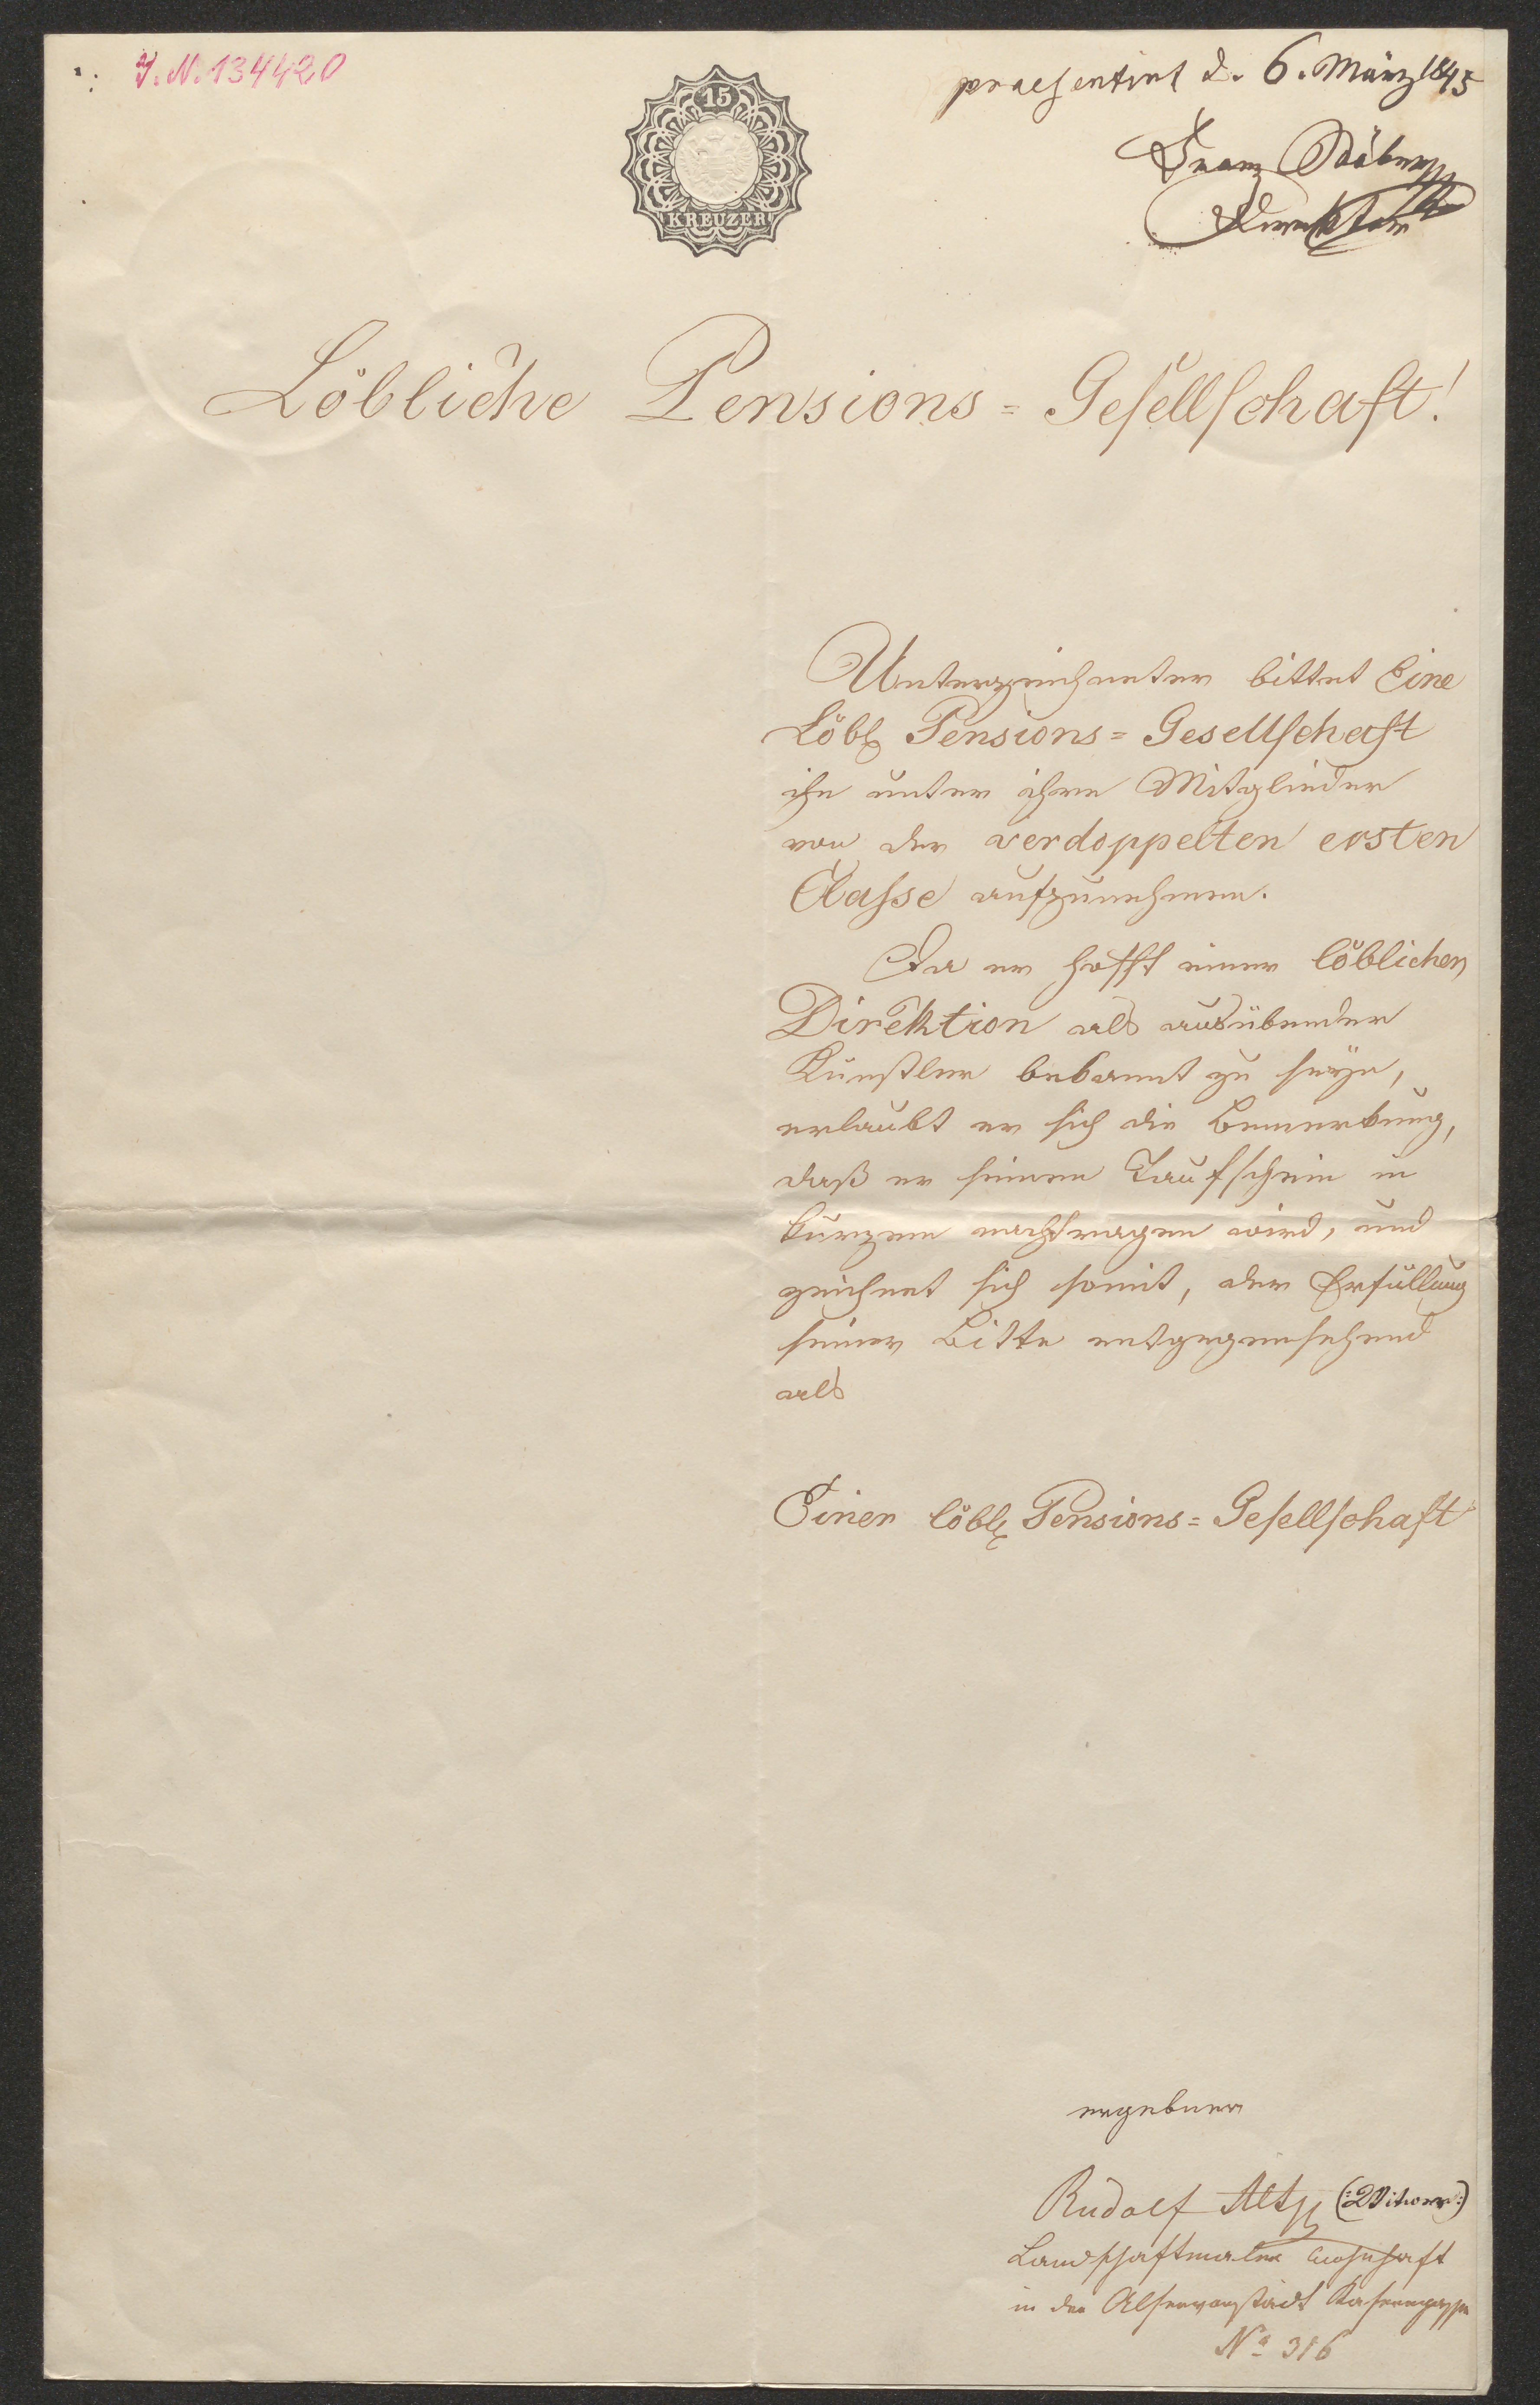 I. N. 134420
praesentirt d. 6. März 1845
Franz Stöber
Direktor
15
KREUZER
Löbliche Pensions=Gesellschaft!
Unterzeichneter bittet Eine
Löbl Pensions=Gesellschaft
ihn unter ihre Mitglieder
von der verdoppelten ersten
Classe aufzunehmen.
Da er hofft einer löblichen
Direktion als ausübender
Künstler bekannt zu seyn,
erlaubt er sich die Bemerkung,
daß er seinen Taufschein in
kurzem nachtragen wird, und
zeichnet sich somit, der Erfüllung
seiner Bitte entgegensehend
als
Einer löbl Pensions=Gesellschaft
ergebner
Rudolf Alt
Landschaftmaler wohnhaft
in der Alservorstadt Kaserngasse
No 316